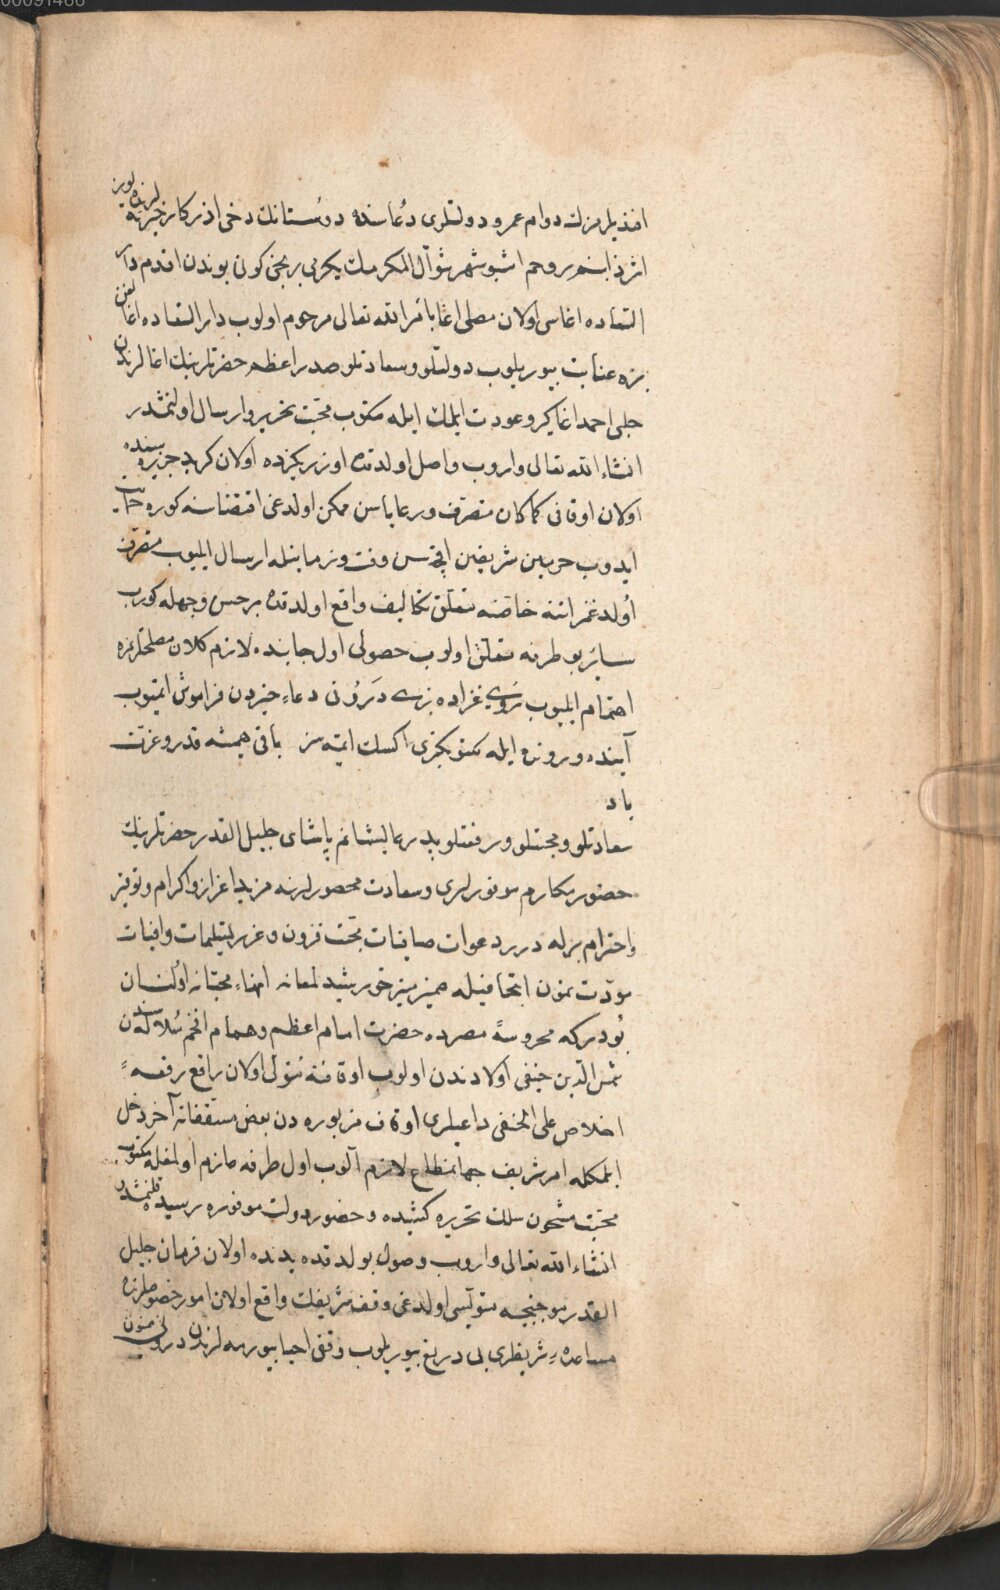 افندیلرمزك دوام عمر و دولتلری دعاسنده دوستانك دخی اذكار خیریه لرنده بویز
اثر ذاتنه روحم اشبو شهر شوال المكرمك یكرمی برنجی كونی بوندن اقدم دار
السعاده اغاسی اولان مصلی اغا بامر الله تعالی مرحوم اولوب دار السعاده اغالغن
بزه عنایت بیوریلوب دولتلو و سعادتلو صدر اعظم حضرتلرینك اغالرندن
جلی احمد اغا كیرو عودت ایلمك ایله مكتوب محبت تحریر و ارسال اولنمشدر
انشاء الله تعالی واروب واصل اولدقده اوزریكزده اولان كرید جزیره سنده
اولان اوقافی كماكان متصرف و رعایاسن ممكن اولدغی اقتضاسنه كوره
ایدوب حرمین شریفین اقچه سن وقت و زمانیله ارسال ایلیوب متصرف
اولدغمز اتنه خاصنه متعلق تكالیف واقع اولدقده بر حسن وجهله كوروب
سائر بو طرفه متعلق اولوب حصولی اول جانبده لازم كلان مصلحتلرمزه
اهتمام ایلیوب نزدی دعاء خیردن فراموش ایتمیوب
آینده و رونده ایله مكتوبكزی اكسك ایتمیه سز باقی همیشه قدر و عزت
باد
سعادتلو و محبتلو و رفعتلو پدر عالیشانم پاشای جلیل القدر حضرتلرینك
حضور مكارم موفورلری و سعادت محصورلرینه مزید اعزاز و اكرام و توقیر
و احترام برله درر دعوات صافیات محبت فزون و غرر تسلیمات وافیات
مودت نمون اتحافیله ضمیر منیر خورشید لمعانه انهاء محبانه اولنان
بودركه محروسهٔ مصرده حضرت امام اعظم و همام افخم سلاله سندن
شمس الدین حنفی اولادندن اولوب اوقافنه متولی اولان رافع رقعهٔ
اخلاص علی الحنفی داعیلری اوقاف مزبوره دن بعض مسقفاته آخر دخل
ایلمكله امر شریف جهانمطاع لازم آلوب اول طرفه عازم اولمغله مكتوب
محبت مشحون سلك تحریره كشیده و حضور دولت موفوره رسیده قلنمشدر
انشاء الله تعالی واروب وصول بولدقده یدنده اولان فرمان جلیل
القدر موجبنجه متولیسی اولدغی وقف شریفك واقع اولان امور خصوصلرنده
مساعدهٔ شریفلری بی دریغ بیوریلوب وقفی احیا بیورمه لرندن درونی ممنون